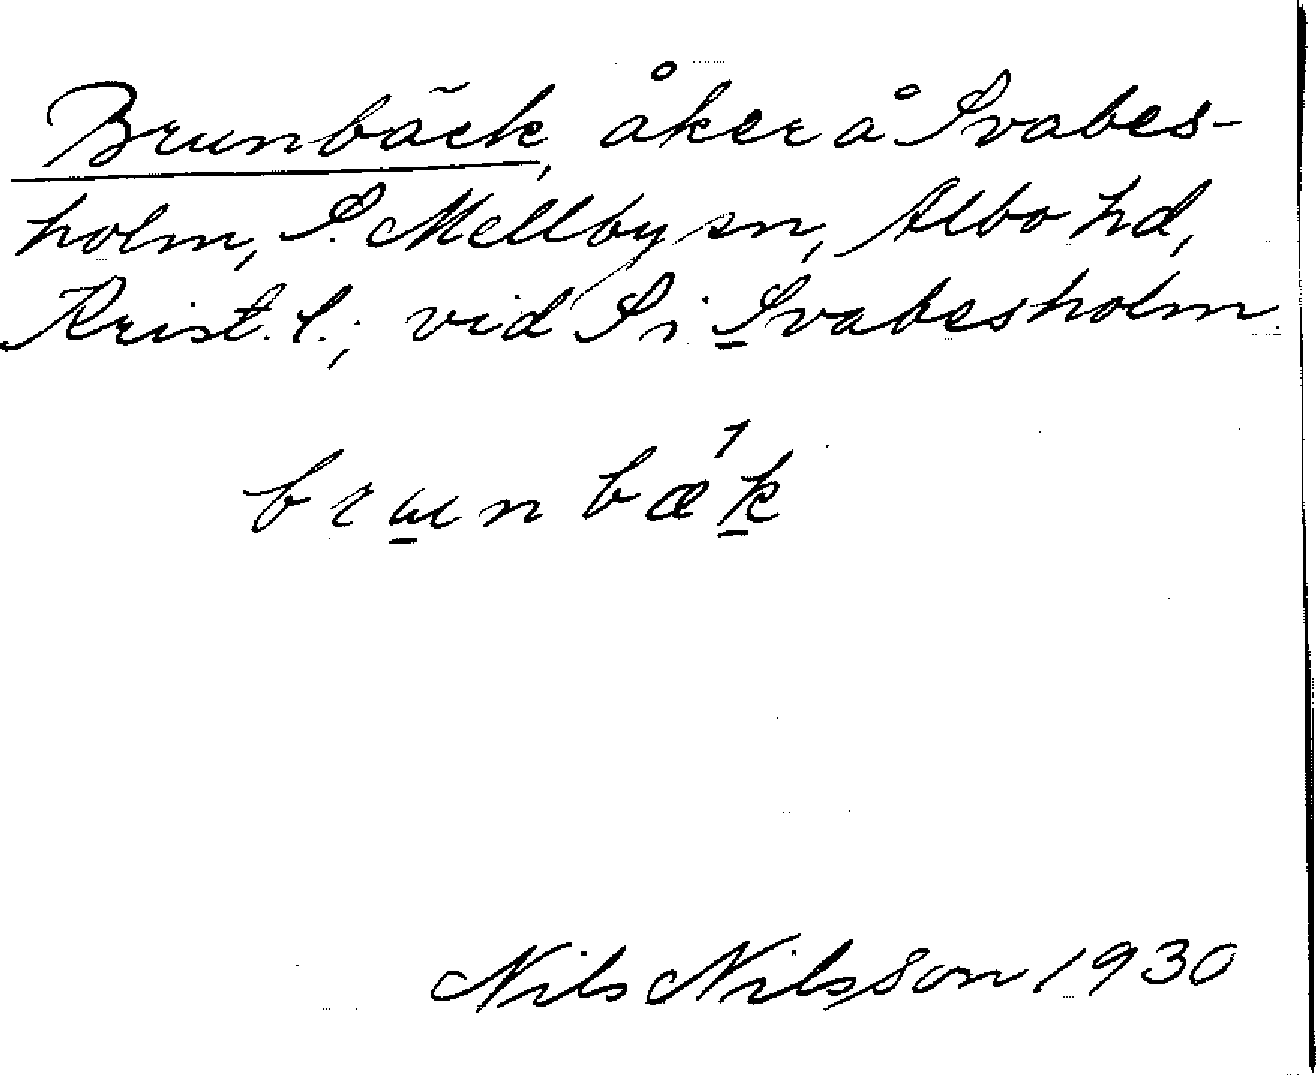 Brunbäck, åker å Svabes-
holm, S. Mellby sn, Albo hd,
Krist. l.; vid S i Svabesholm.
brunbæ´k
Nils Nilsson 1930